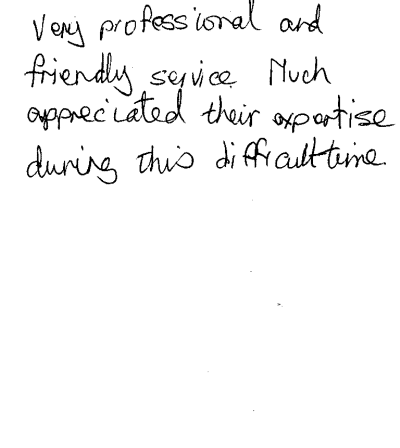 Very professional and
friendly service. Much
appreciated their expertise
during this difficult time.